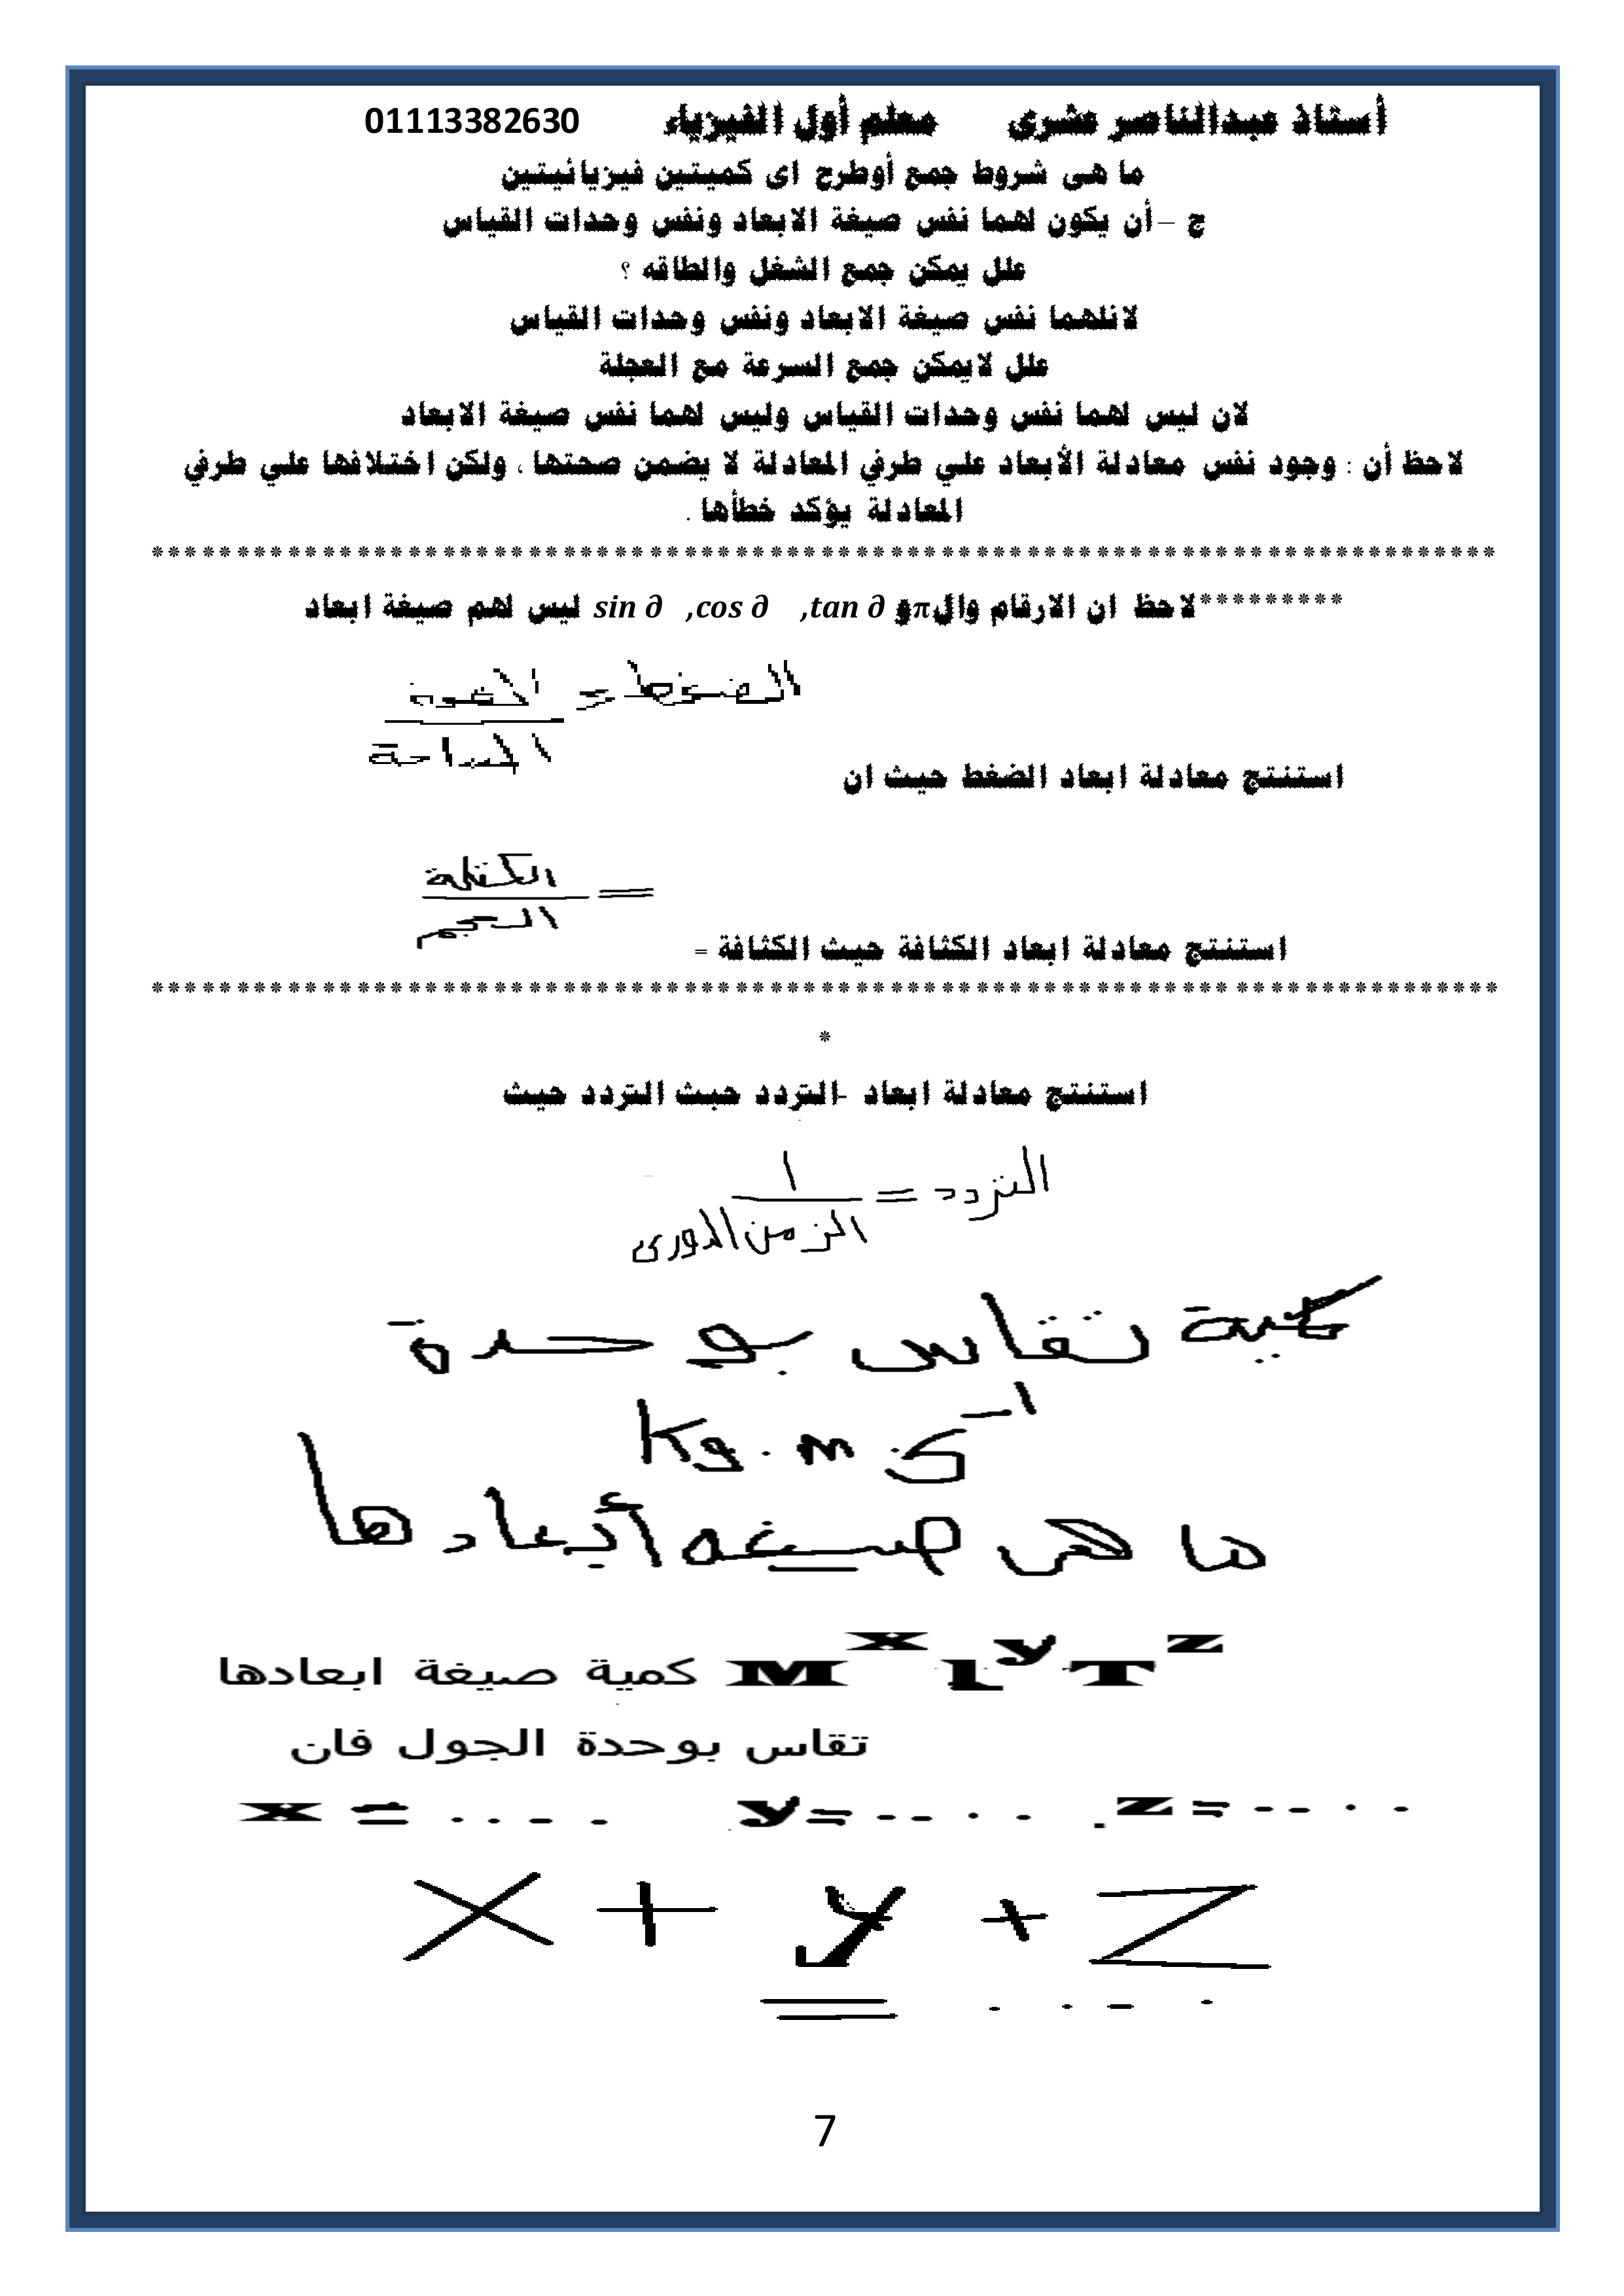 أستاذ عبدالناصر عشرى معلم أول الفيزياء 01113382630
ما هى شروط جمع أوطرح اى كميتين فيزيائيتين
ج – أن يكون لهما نفس صيغة الابعاد ونفس وحدات القياس
علل يمكن جمع الشغل والطاقه ؟
لانلهما نفس صيغة الابعاد ونفس وحدات القياس
علل لايمكن جمع السرعة مع العجلة
لان ليس لهما نفس وحدات القياس وليس لهما نفس صيغة الابعاد
لاحظ أن : وجود نفس معادلة الأبعاد علي طرفي المعادلة لا يضمن صحتها ، ولكن اختلافها علي طرفي
المعادلة يؤكد خطأها .
*******************************************************************************
*********لاحظ ان الارقام والπ و sin ∂ ,cos ∂ ,tan ∂ ليس لهم صيغة ابعاد
الضغط = القوة
المساحة
استنتج معادلة ابعاد الضغط حيث ان
= الكتلة
الحجم
استنتج معادلة ابعاد الكثافة حيث الكثافة =
*******************************************************************************
*
استنتج معادلة ابعاد -التردد حبث التردد حيث
التردد = ١
الزمن الدورى
كمية تقاس بوحدة
kg . m s⁻¹
ما هى صيغه أبعادها
كمية صيغة ابعادها M^x L^y T^z
تقاس بوحدة الجول فان
x = .... y = ..... z = ....
X + y + Z
= ....
7